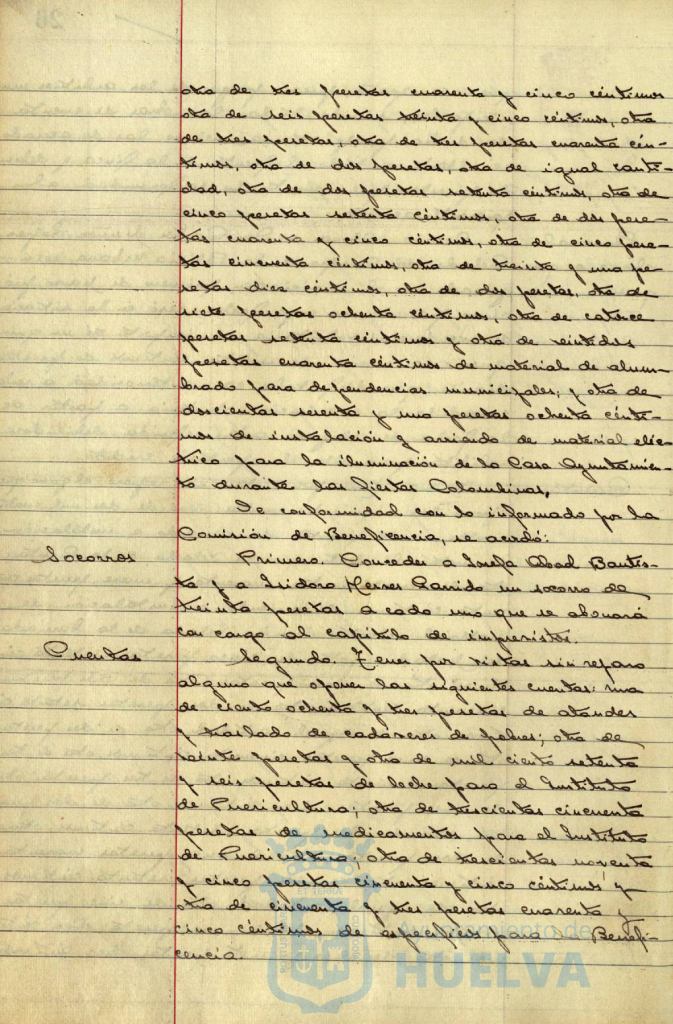 otra de tres pesetas cuarenta y cinco céntimos
otra de seis pesetas treinta y cinco céntimos, otra
de tres pesetas, otra de tres pesetas cuarenta cén-
timos, otra de dos pesetas, otra de igual canti-
dad, otra de dos pesetas setenta céntimos, otra de
cinco pesetas setenta céntimos, otra de dos pese-
tas cuarenta y cinco céntimos, otra de cinco pese-
tas cincuenta céntimos, otra de treinta y una pe-
setas diez céntimos, otra de dos pesetas, otra de
siete pesetas ochenta céntimos, otra de catorce
pesetas setenta céntimos y otra de veintidos
pesetas cuarenta céntimos de material de alum-
brado para dependencias municipales; y otra de
doscientas sesenta y una pesetas ochenta cénti-
mos de instalación y arriendo de material eléc-
trico para la iluminación de la Casa Ayuntamien-
to durante las fiestas Colombinas.
De conformidad con lo informado por la
Comisión de Beneficencia, se acordó:
Socorros
Primero. Conceder a Josefa Abad Bautis-
ta y a Isidoro Herrer Garrido un socorro de
treinta pesetas a cada uno que se abonará
con cargo al capítulo de imprevistos.
Cuentas
Segundo. Tener por vistas sin reparo
alguno que oponer las siguientes cuentas: una
de ciento ochenta y tres pesetas de ataudes
y traslado de cadáveres de pobres; otra de
veinte pesetas y otra de mil ciento setenta
y seis pesetas de leche para el Instituto
de Puericultura; otra de trescientas cincuenta
pesetas de medicamentos para el Instituto
de Puericultura; otra de trescientas noventa
y cinco pesetas cincuenta y cinco céntimos y
otra de cincuenta y tres pesetas cuarenta y
cinco céntimos de específicos para Benefi-
cencia.
HUELVA